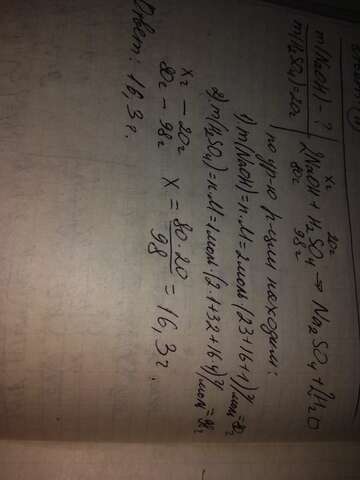 m(NaOH) - ?
m(H₂SO₄) = 20г
xг 20г
2NaOH + H₂SO₄ → Na₂SO₄ + 2H₂O
80г 98г
по ур-ю р-ции находим:
1) m(NaOH) = n·M = 2моль·(23+16+1)г/моль = 80г
2) m(H₂SO₄) = n·M = 1моль·(2·1+32+16·4)г/моль = 98г
xг – 20г
80г – 98г x = 80·20/98 = 16,3г.
Ответ: 16,3г.